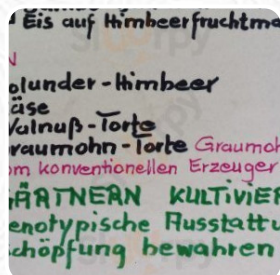 Eis auf Himbeerfruchtma
N
olunder-Himbeer
äse
Valnuß-Torte
raumohn-Torte Graumoh
om konventionellen Erzeuger
ÄRTNERN KULTIVIER
enotypische Ausstattu
chöpfung bewahren